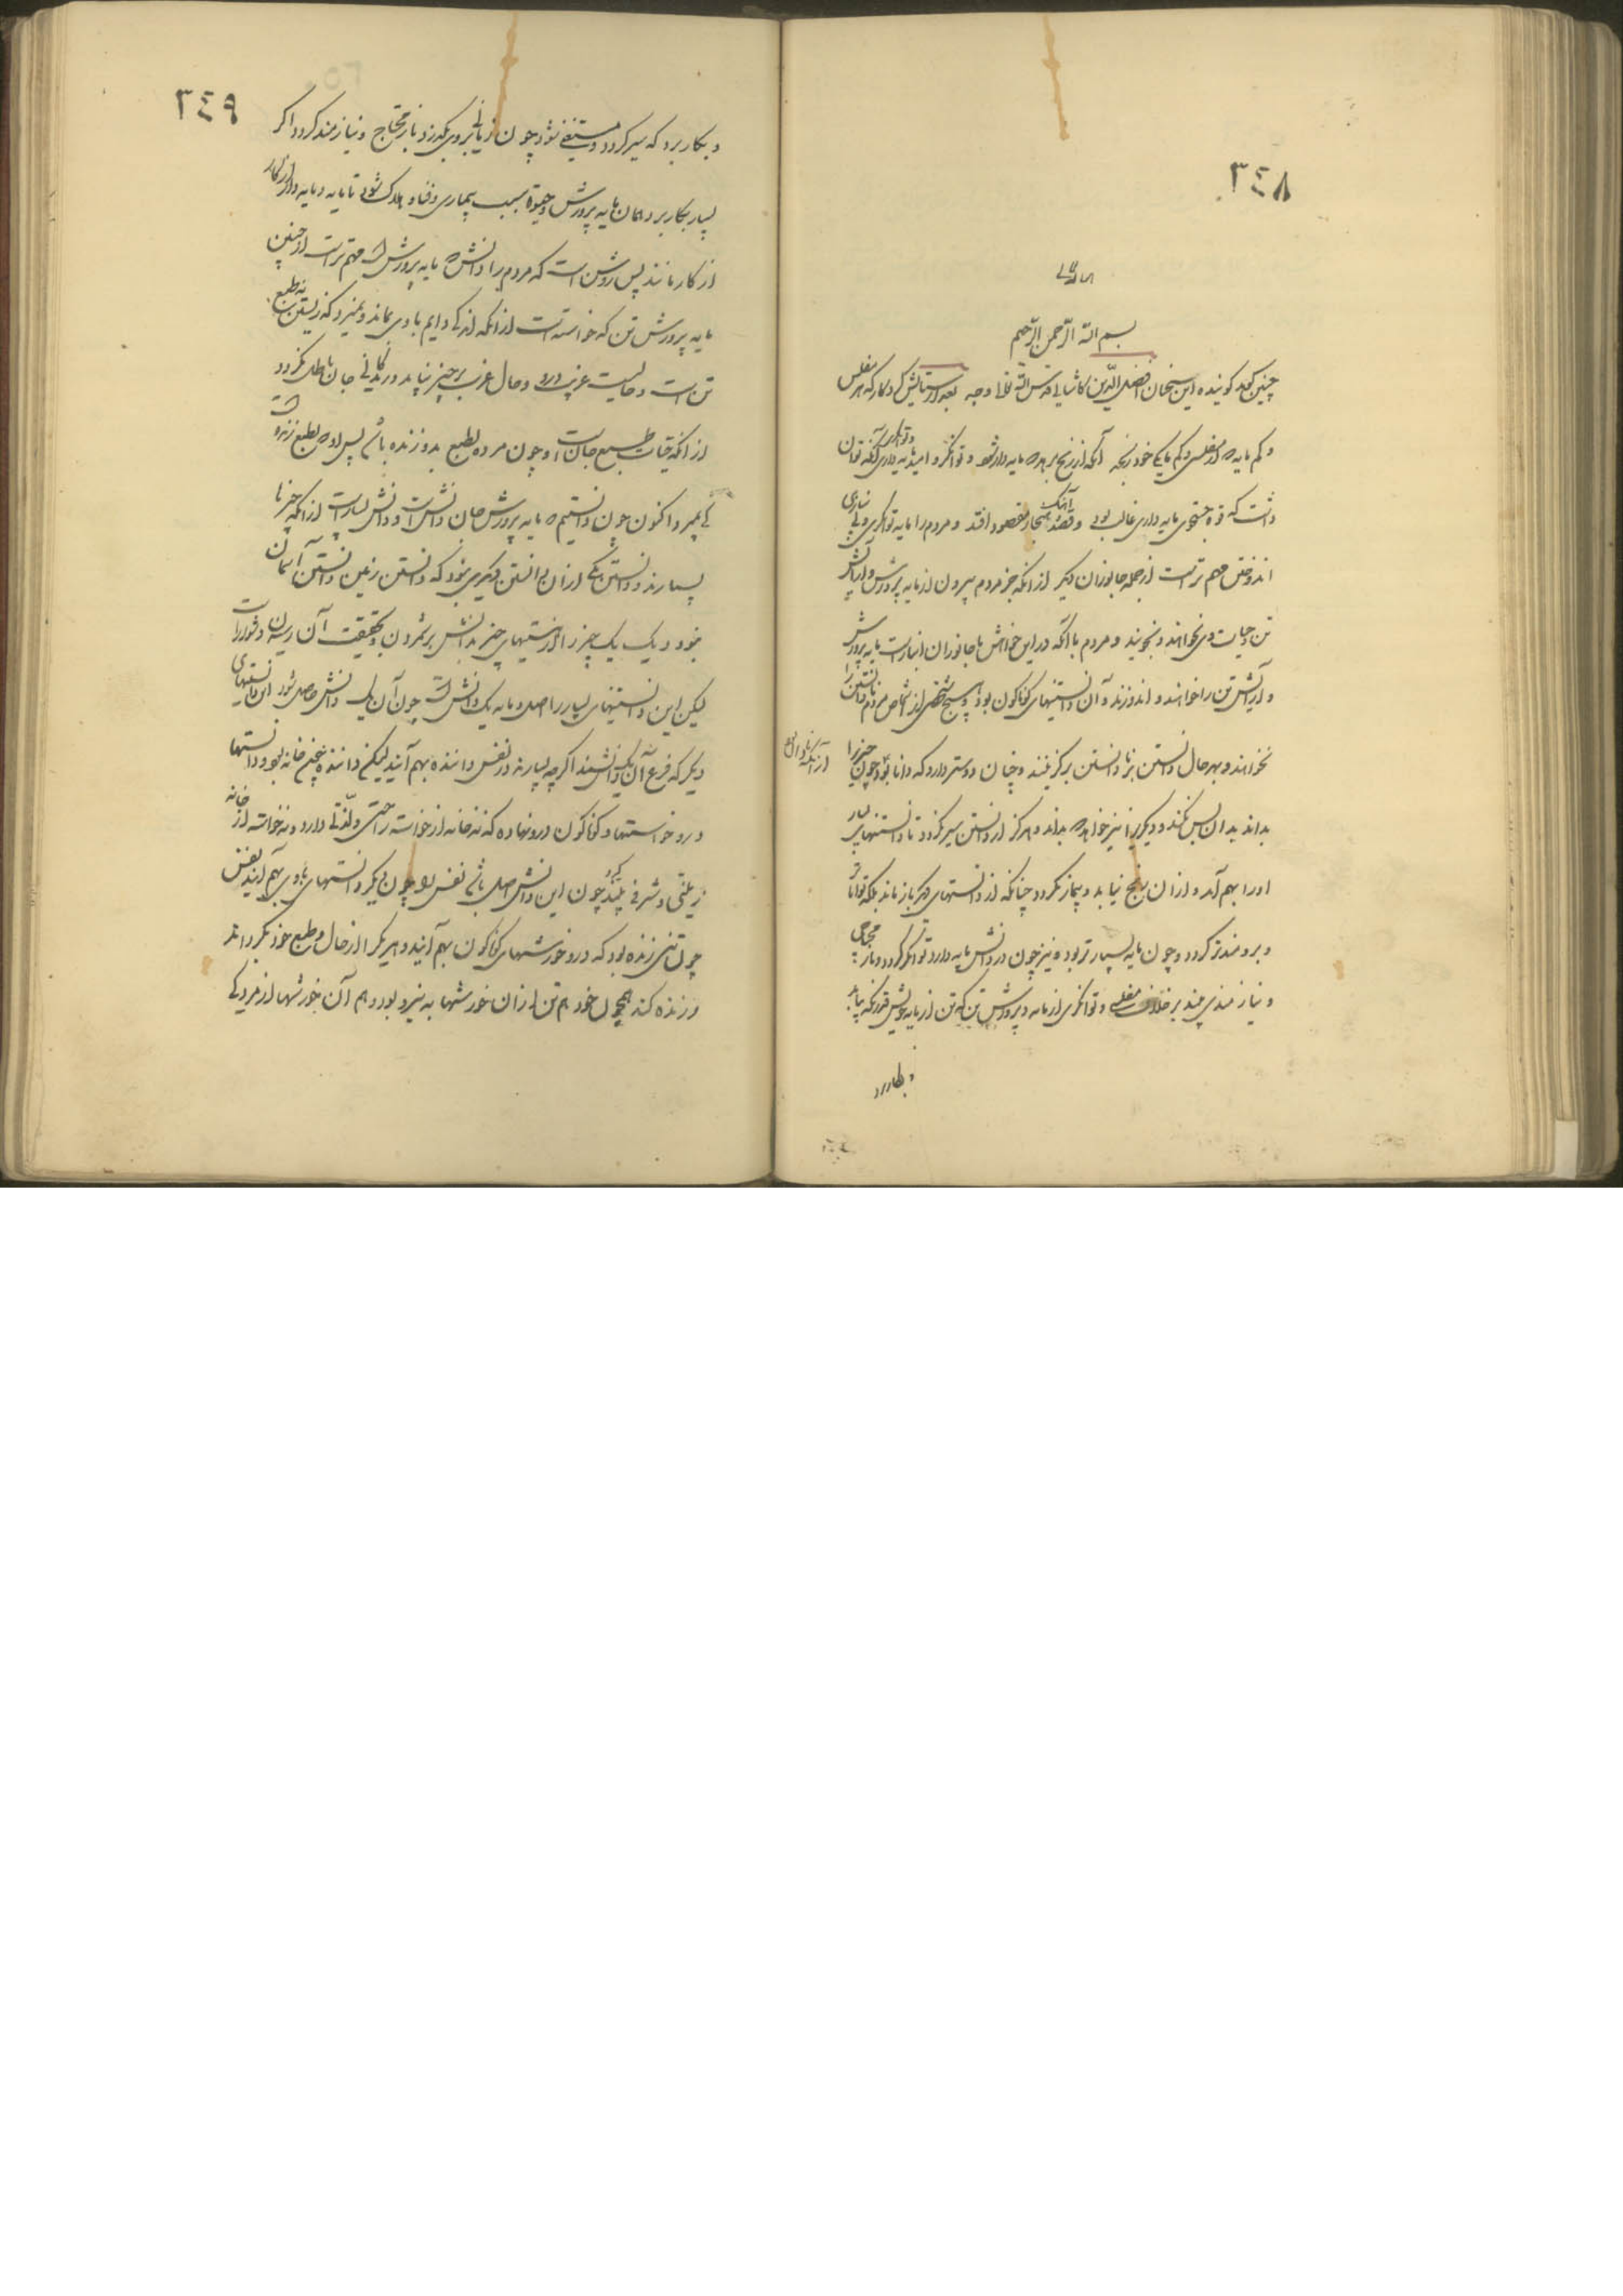 ٣٤٨
بسم الله الرحمن الرحیم
چنین گوید گوینده این سخنان افضل الدین کاشانی قدس الله بعد از ستایش کردگار که هر مفلس
و کم مایه از مفلسی و کم مایگی خود رنجه آنکه از رنج برهد مایه دار شود و توانگر و امید مایه داری و توانگری آنگه توان
داشت که قوة جستجوی مایه داری غالب بود و قصد و آهنگ بهنجار مقصود افتد و مردم را مایه توانگری و بی نیازی
اندوختن مهم ترست از جمله جانوران دیگر از انکه جز مردم بیرون از مایه پرورش و آرایش
تن و حیات وی نخواهند و نجویند و مردم با آنکه در این خواهش با جانوران انبازست مایه پرورش
و آرایش تن را خواهند و اندوزند و آن دانستنیهای گوناگون بود و هیچ شخص از اشخاص مردم نادانستن را
نخواهند و بهر حال دانستن بر نادانستن برگزینند و چنان دوستر دارد که دانا بود چون چیز را
از آنکه نادان
بداند بدان بس نکند و دیگر را نیز خواهد بداند و هرگز از دانستن سیر نگردد تا دانستنیهای بسیار
او را بهم آید و از آن رنج نیابد و بیمار نگردد چنانکه از دانستهای دیگر باز ماند بلکه تواناتر
و برومندتر گردد و چون مایه بسیار تر بود نیز چون در دانش مایه دارد توانگر گردد و باز محتاجی
و نیازمندی نبیند بر خلاف مفلسی و توانگری از مایه و پرورش تن که تن از مایه خویش قدر آنکه بیابد
و بکار برد
٣٤٩
و بکار برد که سیر گردد و مستغنی شود چون زمانی بروی بگذرد باز محتاج و نیازمند گردد اگر
بسیار بکار برد همان مایه پرورش و حیوة سبب بیماری و فنا و هلاک شود تا مایه و مایه دار از کار
از کار مانند پس روشن است که مردم را دانش مایه پرورش است مهم تر است از چنین
مایه پرورش تن که خواسته است از آنکه زندگی دایم باوی بماند و نمیرد که زیستن نه بطبع
تن است و حالیست غریب درو و حال غریب بر چیز نپاید و زندگانی جان باطل نگردد
از آنکه حیات بطبع جان است و چون مرده بطبع بدو زنده باشد پس او بطبع زنده است
کی بمیرد اکنون چون دانستیم که مایه پرورش جان دانش است و دانش بسیارست از آنکه چیزها
بسیارند و دانستن یکی از آن دانستن دیگری نبود که دانستن زمین دانستن آسمان
نبود و یک یک چیز را از دانستنیهای چیز بدانش بر شمردن و بحقیقت آن رسیدن دشوارست
لیکن این دانستنیهای بسیار را اصل و مایه یک دانش است چون آن یک دانش حاصل شود این دانستنیهای
دیگر که فرع آن یک دانشند اگر چه بسیارند در نفس داننده بهم آیند لیکن داننده همچنین خانه بود و دانستها
درو خواستهای گوناگون درو نهاده که نه خانه از خواسته راحتی و لذتی دارد و نه خواسته از خانه
زینتی و شرفی پذیرد چون این دانش اصل باشد نفس او چون دیگر دانستهای باوی بهم آیند نفس
چون تنی زنده بود که درو خورشهای گوناگون بهم آیند و هر یک را از حال و طبع خود بگرداند
و زنده کند همچون خود هم تن از آن خورشها به نیرو بود و هم آن خورشها از مردگی